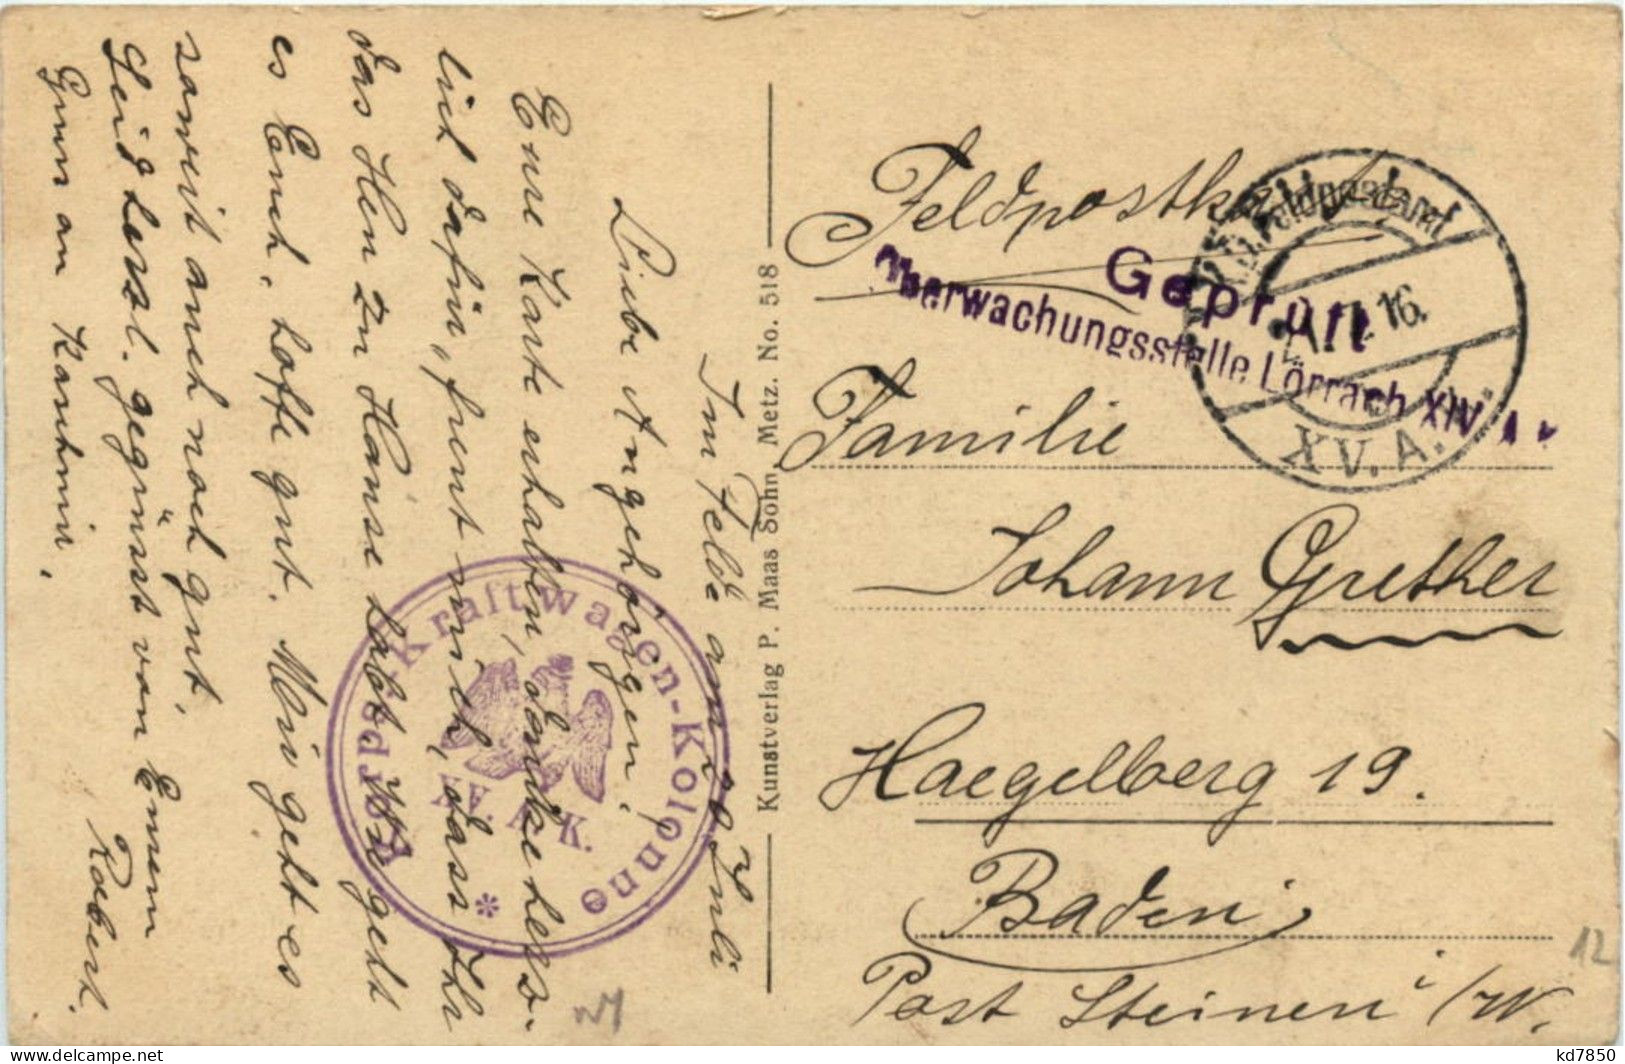 Im Felde am 20 Juli
Liebe Angehörigen!
Eure Karte erhalten, danke herz-
lich dafür, freut mich, dass Ihr
das Heu zu Hause habt. Wie geht
es Euch, hoffe gut. Mir geht es
soweit auch noch gut,
Seid herzl. gegrüsst von Eurem
Robert.
Gruss an
Etapp. Kraftwagen-Kolonne
*
A. K.
Kunstverlag P. Maas Sohn, Metz. No. 518
Feldpostkarte
Feldpostamt
16
XV. A.
Geprüft
Überwachungsstelle Lörrach XIV A
Familie
Johann Grether
Haegelberg 19.
Baden
Post Steinen i/W.
12
kd7850